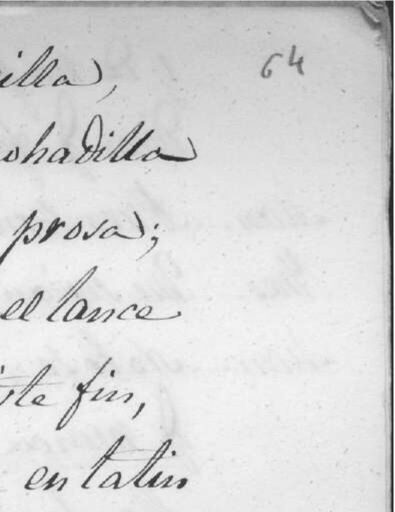 64
illa,
ohadilla
prosa;
el lance
ste fin,
en latin